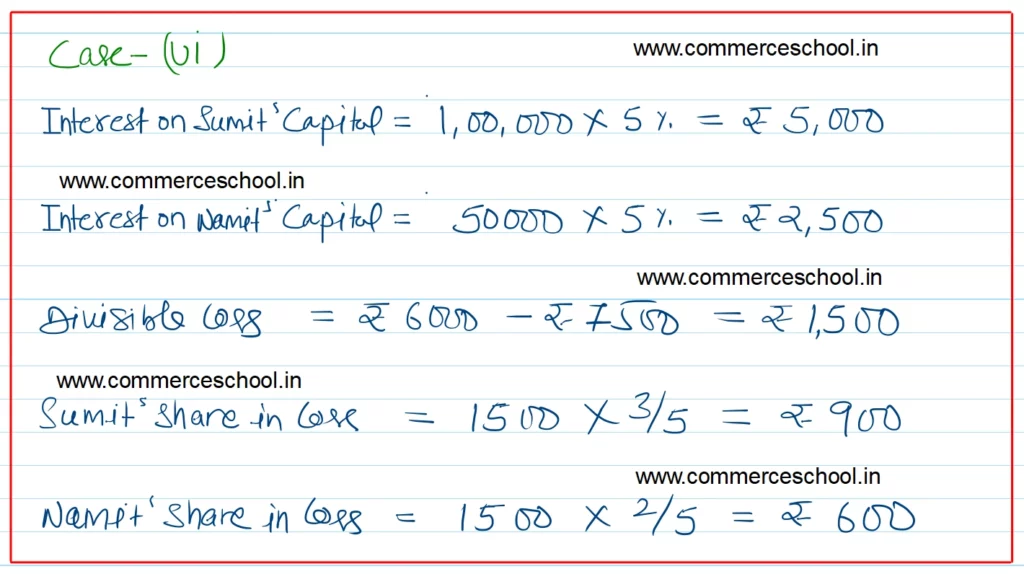 Case-(vi)
www.commerceschool.in
Interest on Sumit's Capital = 1,00,000 × 5 % = ₹ 5,000
www.commerceschool.in
Interest on Namit's Capital = 50000 × 5 % = ₹ 2,500
www.commerceschool.in
Divisible Loss = ₹ 6000 - ₹ 7500 = ₹ 1,500
www.commerceschool.in
Sumit's Share in Loss = 1500 × 3/5 = ₹ 900
www.commerceschool.in
Namit' Share in Loss = 1500 × 2/5 = ₹ 600